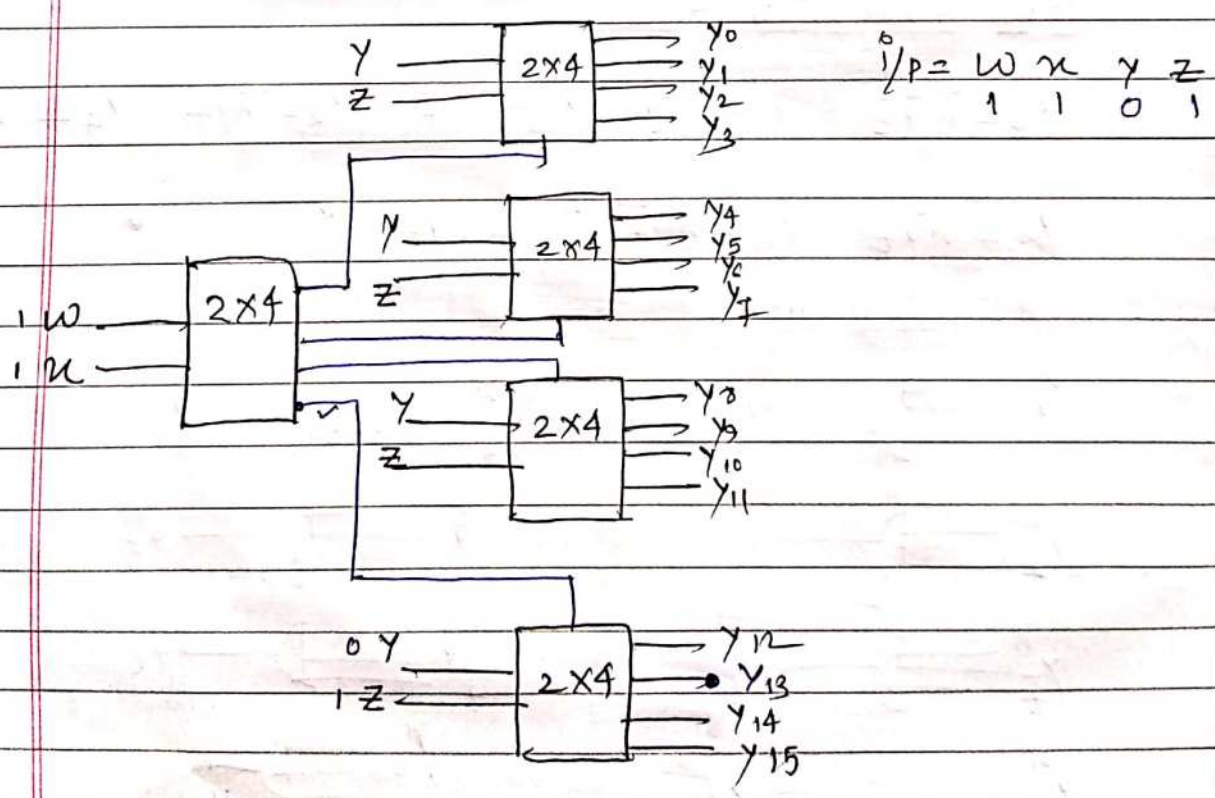 Y 2×4 Y0
Z Y1
Y2
Y3
i/p = W x Y Z
1 1 0 1
Y 2×4 Y4
Z Y5
Y6
Y7
1 W 2×4
1 x
Y 2×4 Y8
Z Y9
Y10
Y11
0 Y 2×4 Y12
1 Z Y13
Y14
Y15